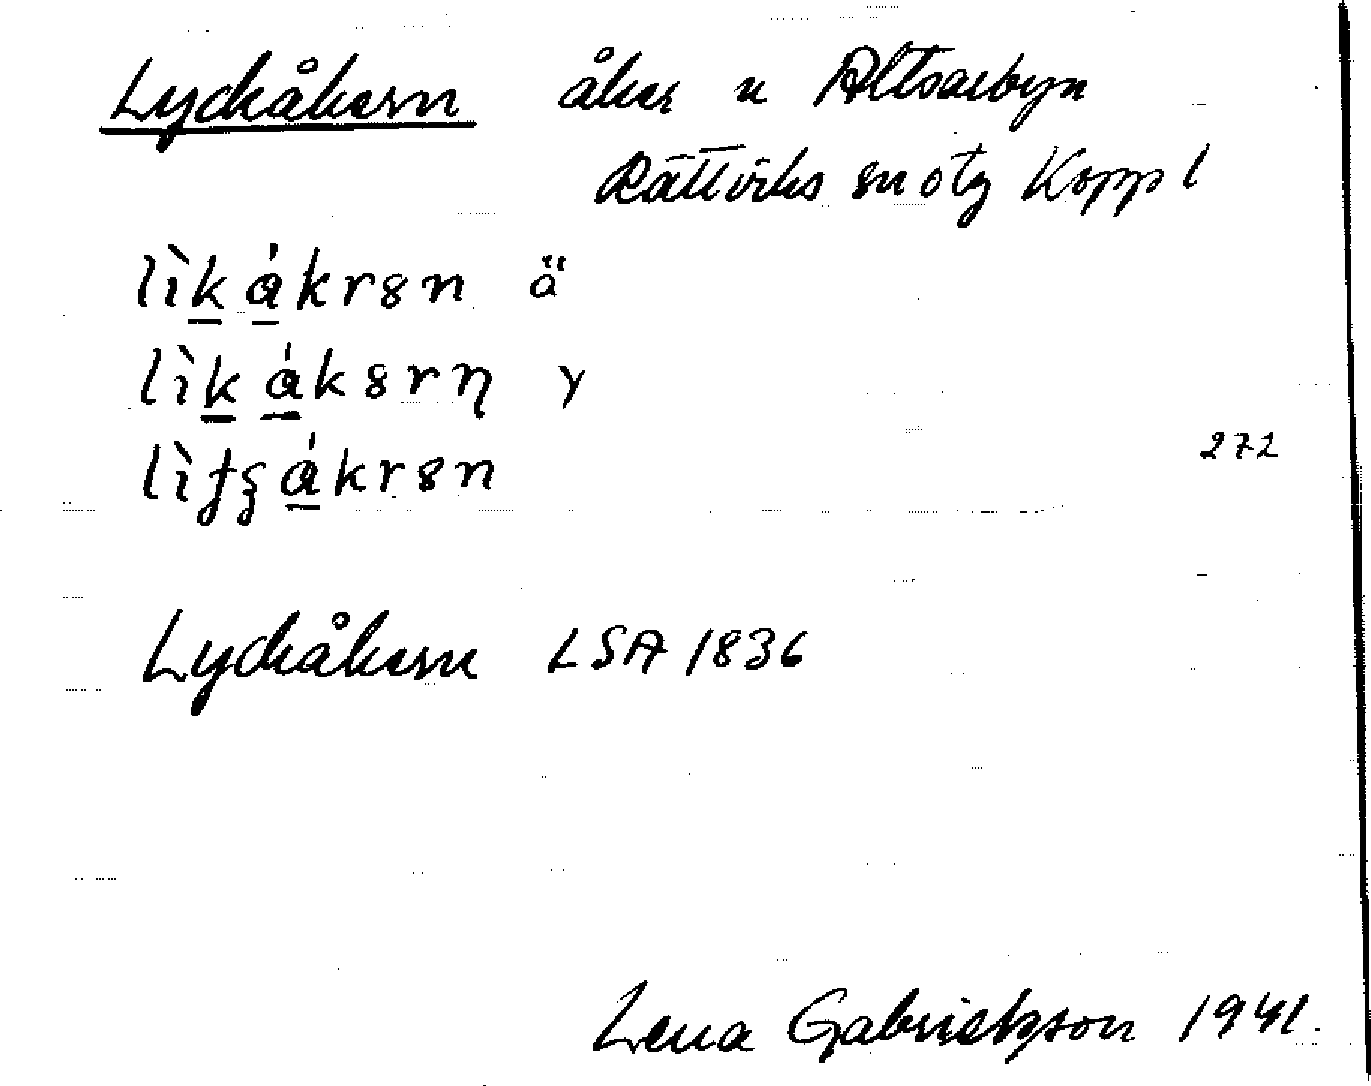 Lyckåkern åker u Altsarbyn
Rättviks sn o tg Kopp l
lìkákrən ä
lìkákərn y
lìtʂákrən
272
Lyckåkern LSA 1836
Lena Gabrielsson 1941.